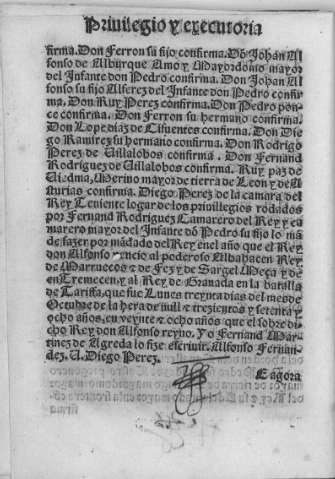 Priuilegio y executoria
firma. Don Ferron su fijo confirma. Dõ Johan Al
fonso de Alburque Amo y Mayordomo mayor
del Infante don Pedro confirma. Don Johan Al
fonso su fijo Alferez del Infante don Pedro confir
ma. Don Ruy Perez cõfirma. Don Pedro pon
ce confirma. Don Ferron su hermano confirma.
Don Lope diaz de Cifuentes confirma. Don Die
go Ramirez su hermano confirma. Don Rodrigo
Perez de Uillalobos confirma. Don Fernand
Rodriguez de Uillalobos confirma. Ruy paz de
Uiedma, Merino mayor de tierra de Leon y de As
turias confirma. Diego Perez de la camara del
Rey Teniente logar de los priuillegios rodados
por Fernand Rodriguez Camarero del Rey y ca
marero mayor del Infante dõ Pedro su fijo lo mã
de fazer por mãdado del Rey en el año que el Rey
don Alfonso vencio al poderoso Albahacen Rey
de Marruecos & de Fez y de Sargel Meça y de
en Tremecen, y al Rey de Granada en la batalla
de Tariffa, que fue Lunes treynta dias del mes de
Octubre de la hera de mill & trezientos y setenta y
ocho años, en veynte & ocho años que el sobre di
cho Rey don Alfonso reyno. Yo Fernand Mar
tinez de Agreda lo fize escriuir. Alfonso Fernan
dez. U. Diego Perez.
E agora